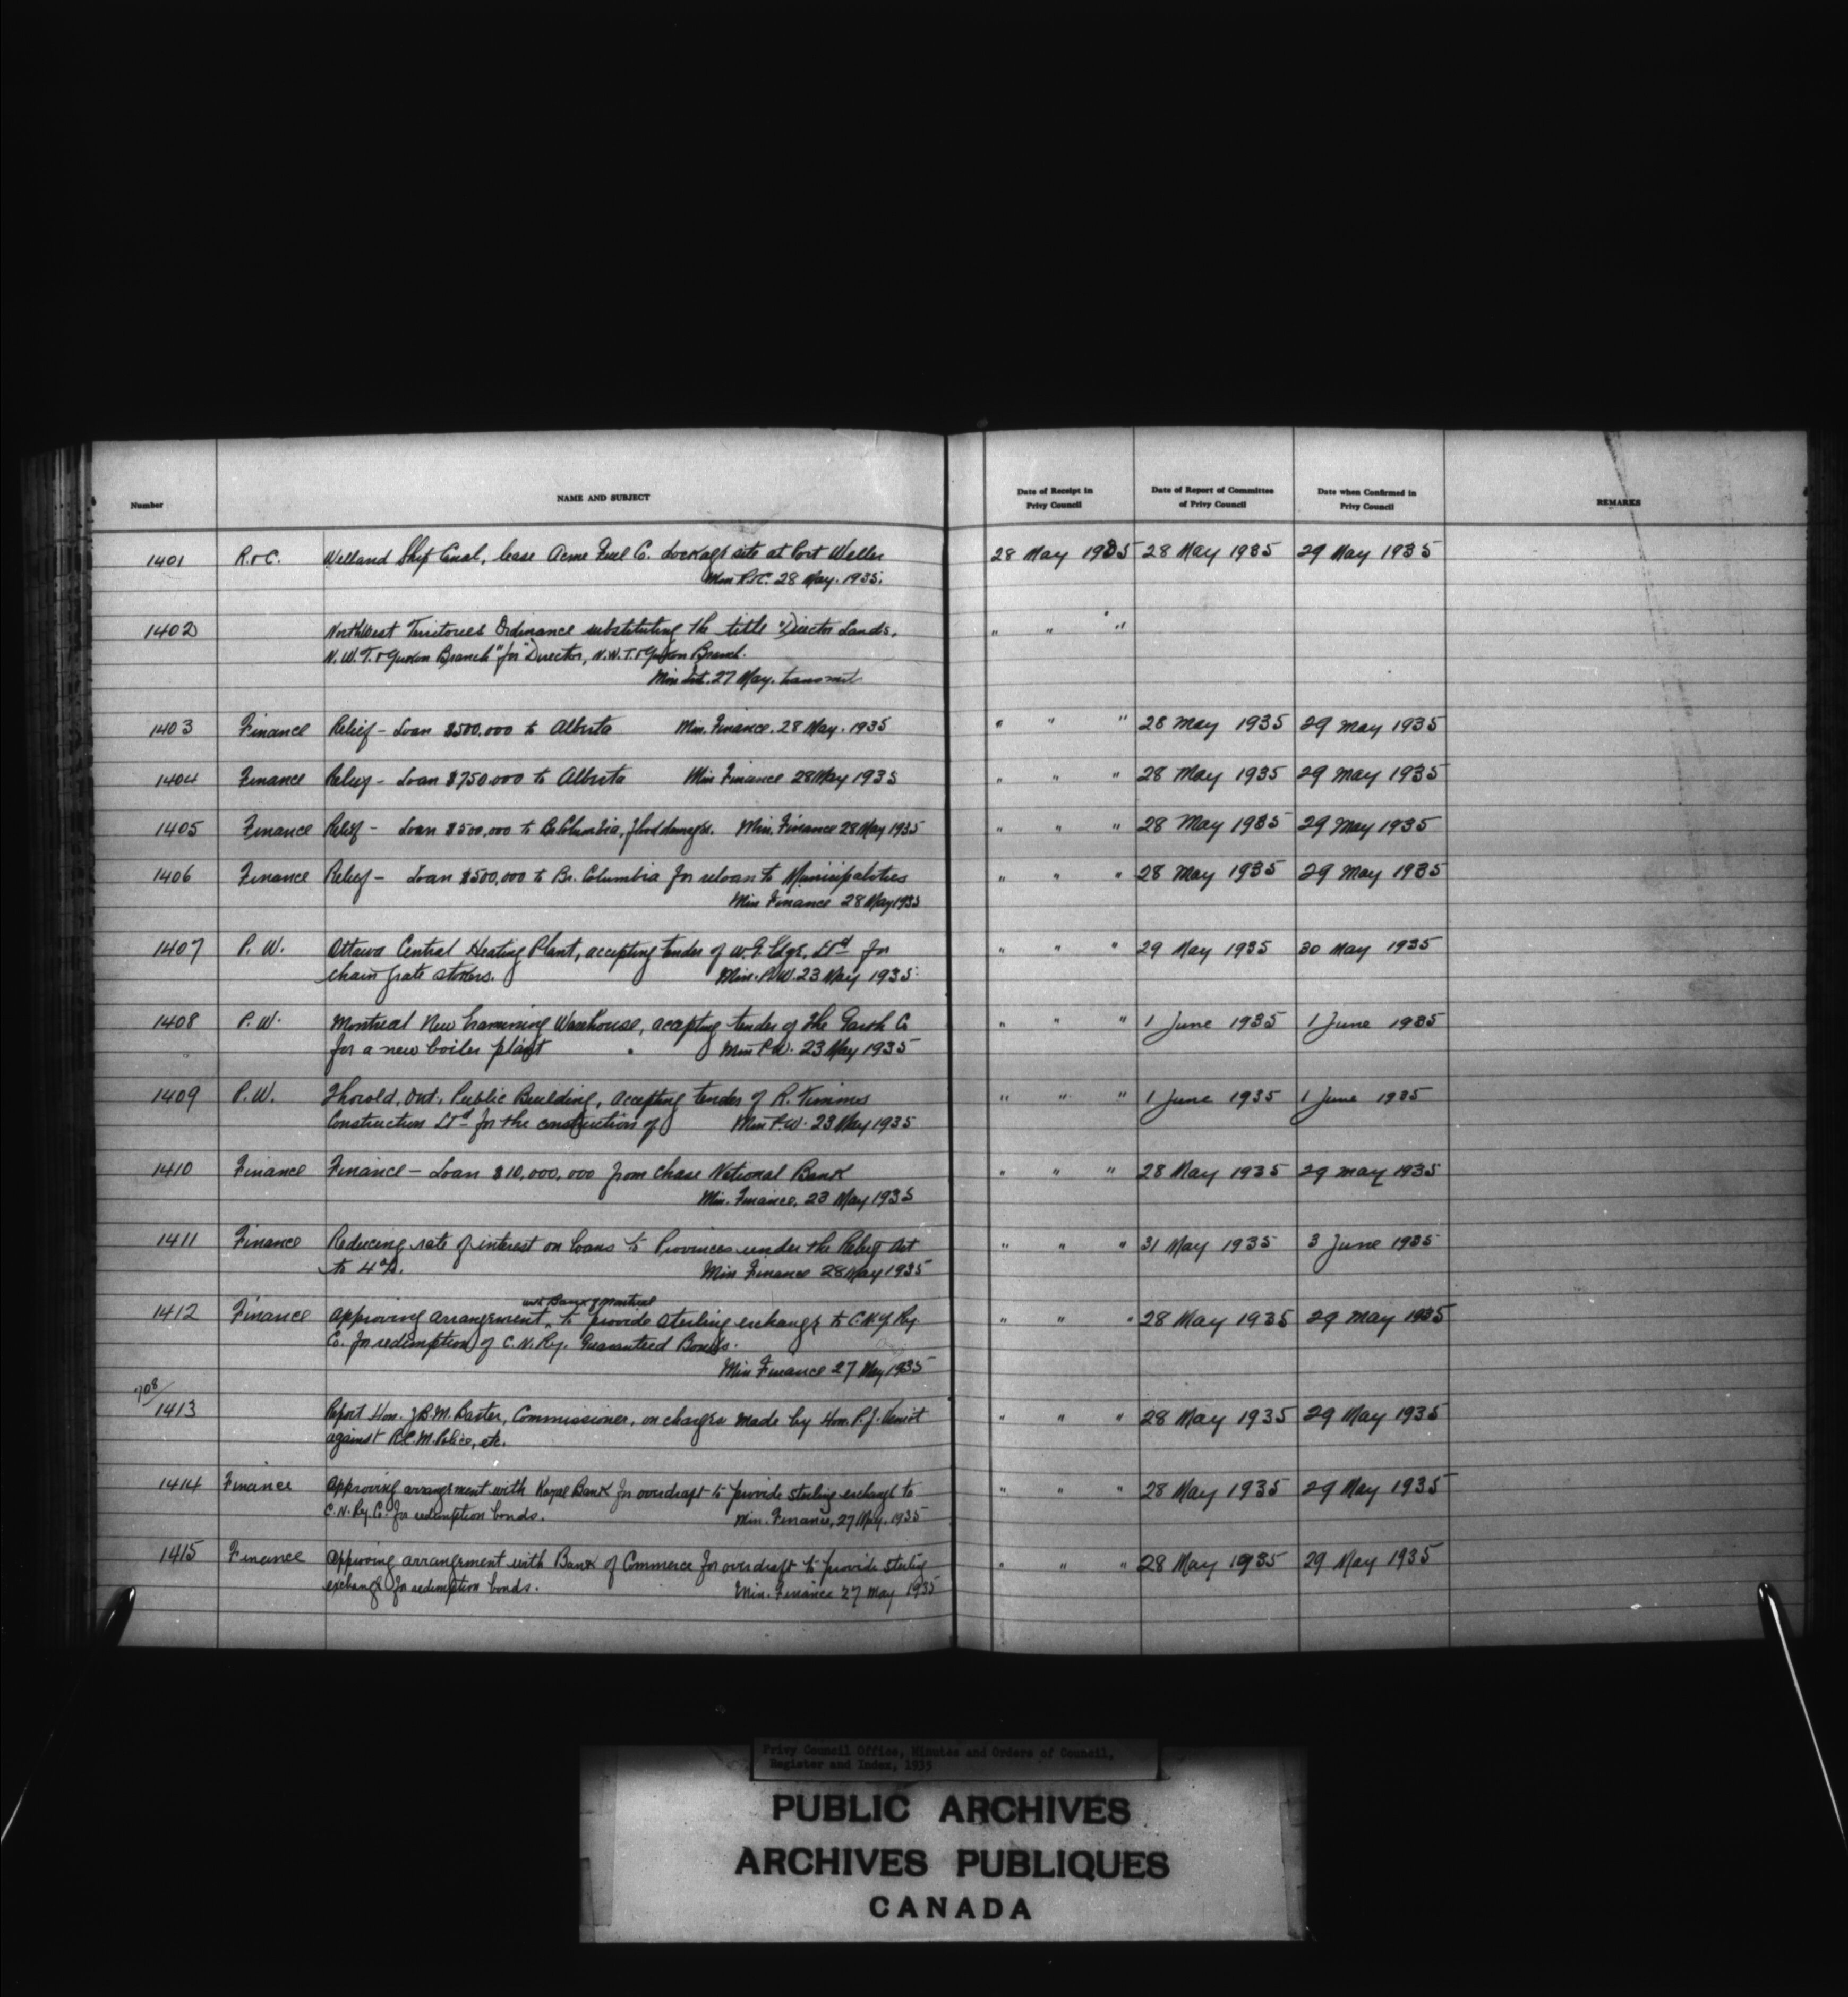 Number
NAME AND SUBJECT
Date of Receipt in Privy Council
Date of Report of Committee of Privy Council
Date when Confirmed in Privy Council
REMARKS
1401 R. & C. Welland Ship Canal, lease Acme Fuel Co. dockage site at Port Weller 28 May 1935 28 May 1935 29 May 1935
Min R.&C. 28 May. 1935.
1402 Northwest Territories Ordinance substituting the title "Director Lands, " " "
N.W.T. & Yukon Branch" for "Director, N.W.T. & Yukon Branch.
Min Int. 27 May. transmit
1403 Finance Relief - Loan $500,000 to Alberta Min. Finance. 28 May. 1935 " " " 28 May 1935 29 May 1935
1404 Finance Relief - Loan $750,000 to Alberta Min Finance 28 May 1935 " " " 28 May 1935 29 May 1935
1405 Finance Relief - Loan $500,000 to B. Columbia, flood damages. Min. Finance 28 May 1935 " " " 28 May 1935 29 May 1935
1406 Finance Relief - Loan $500,000 to Br. Columbia for reloan to Municipalities " " " 28 May 1935 29 May 1935
Min Finance 28 May 1935
1407 P. W. Ottawa Central Heating Plant, accepting tender of W.G. Edge, Ltd for " " " 29 May 1935 30 May 1935
chain grate stokers. Min. P.W. 23 May 1935
1408 P. W. Montreal New Examining Warehouse, accepting tender of The Garth Co " " " 1 June 1935 1 June 1935
for a new boiler plant Min P.W. 23 May 1935
1409 P. W. Thorold, Ont., Public Building, accepting tender of R. Timms " " " 1 June 1935 1 June 1935
Construction Ltd for the construction of Min P.W. 23 May 1935
1410 Finance Finance - Loan $10,000,000 from Chase National Bank " " " 28 May 1935 29 May 1935
Min. Finance, 23 May 1935
1411 Finance Reducing rate of interest on loans to Provinces under the Relief Act " " " 31 May 1935 3 June 1935
to 4%. Min Finance 28 May 1935
with Bank of Montreal
1412 Finance Approving arrangement to provide sterling exchange to C.N. Ry " " " 28 May 1935 29 May 1935
Co. for redemption of C.N. Ry. Guaranteed Bonds.
Min Finance 27 May 1935
708/
1413 Report Hon. J.B.M. Baxter, Commissioner, on charges made by Hon. P.J. Veniot " " " 28 May 1935 29 May 1935
against R.C.M. Police, etc.
1414 Finance Approving arrangement with Royal Bank for overdraft to provide sterling exchange to " " " 28 May 1935 29 May 1935
C.N. Ry. Co. for redemption bonds. Min. Finance, 27 May. 1935
1415 Finance Approving arrangement with Bank of Commerce for overdraft to provide sterling " " " 28 May 1935 29 May 1935
exchange for redemption bonds. Min. Finance 27 May 1935
Privy Council Office, Minutes and Orders of Council,
Register and Index, 1935
PUBLIC ARCHIVES
ARCHIVES PUBLIQUES
CANADA